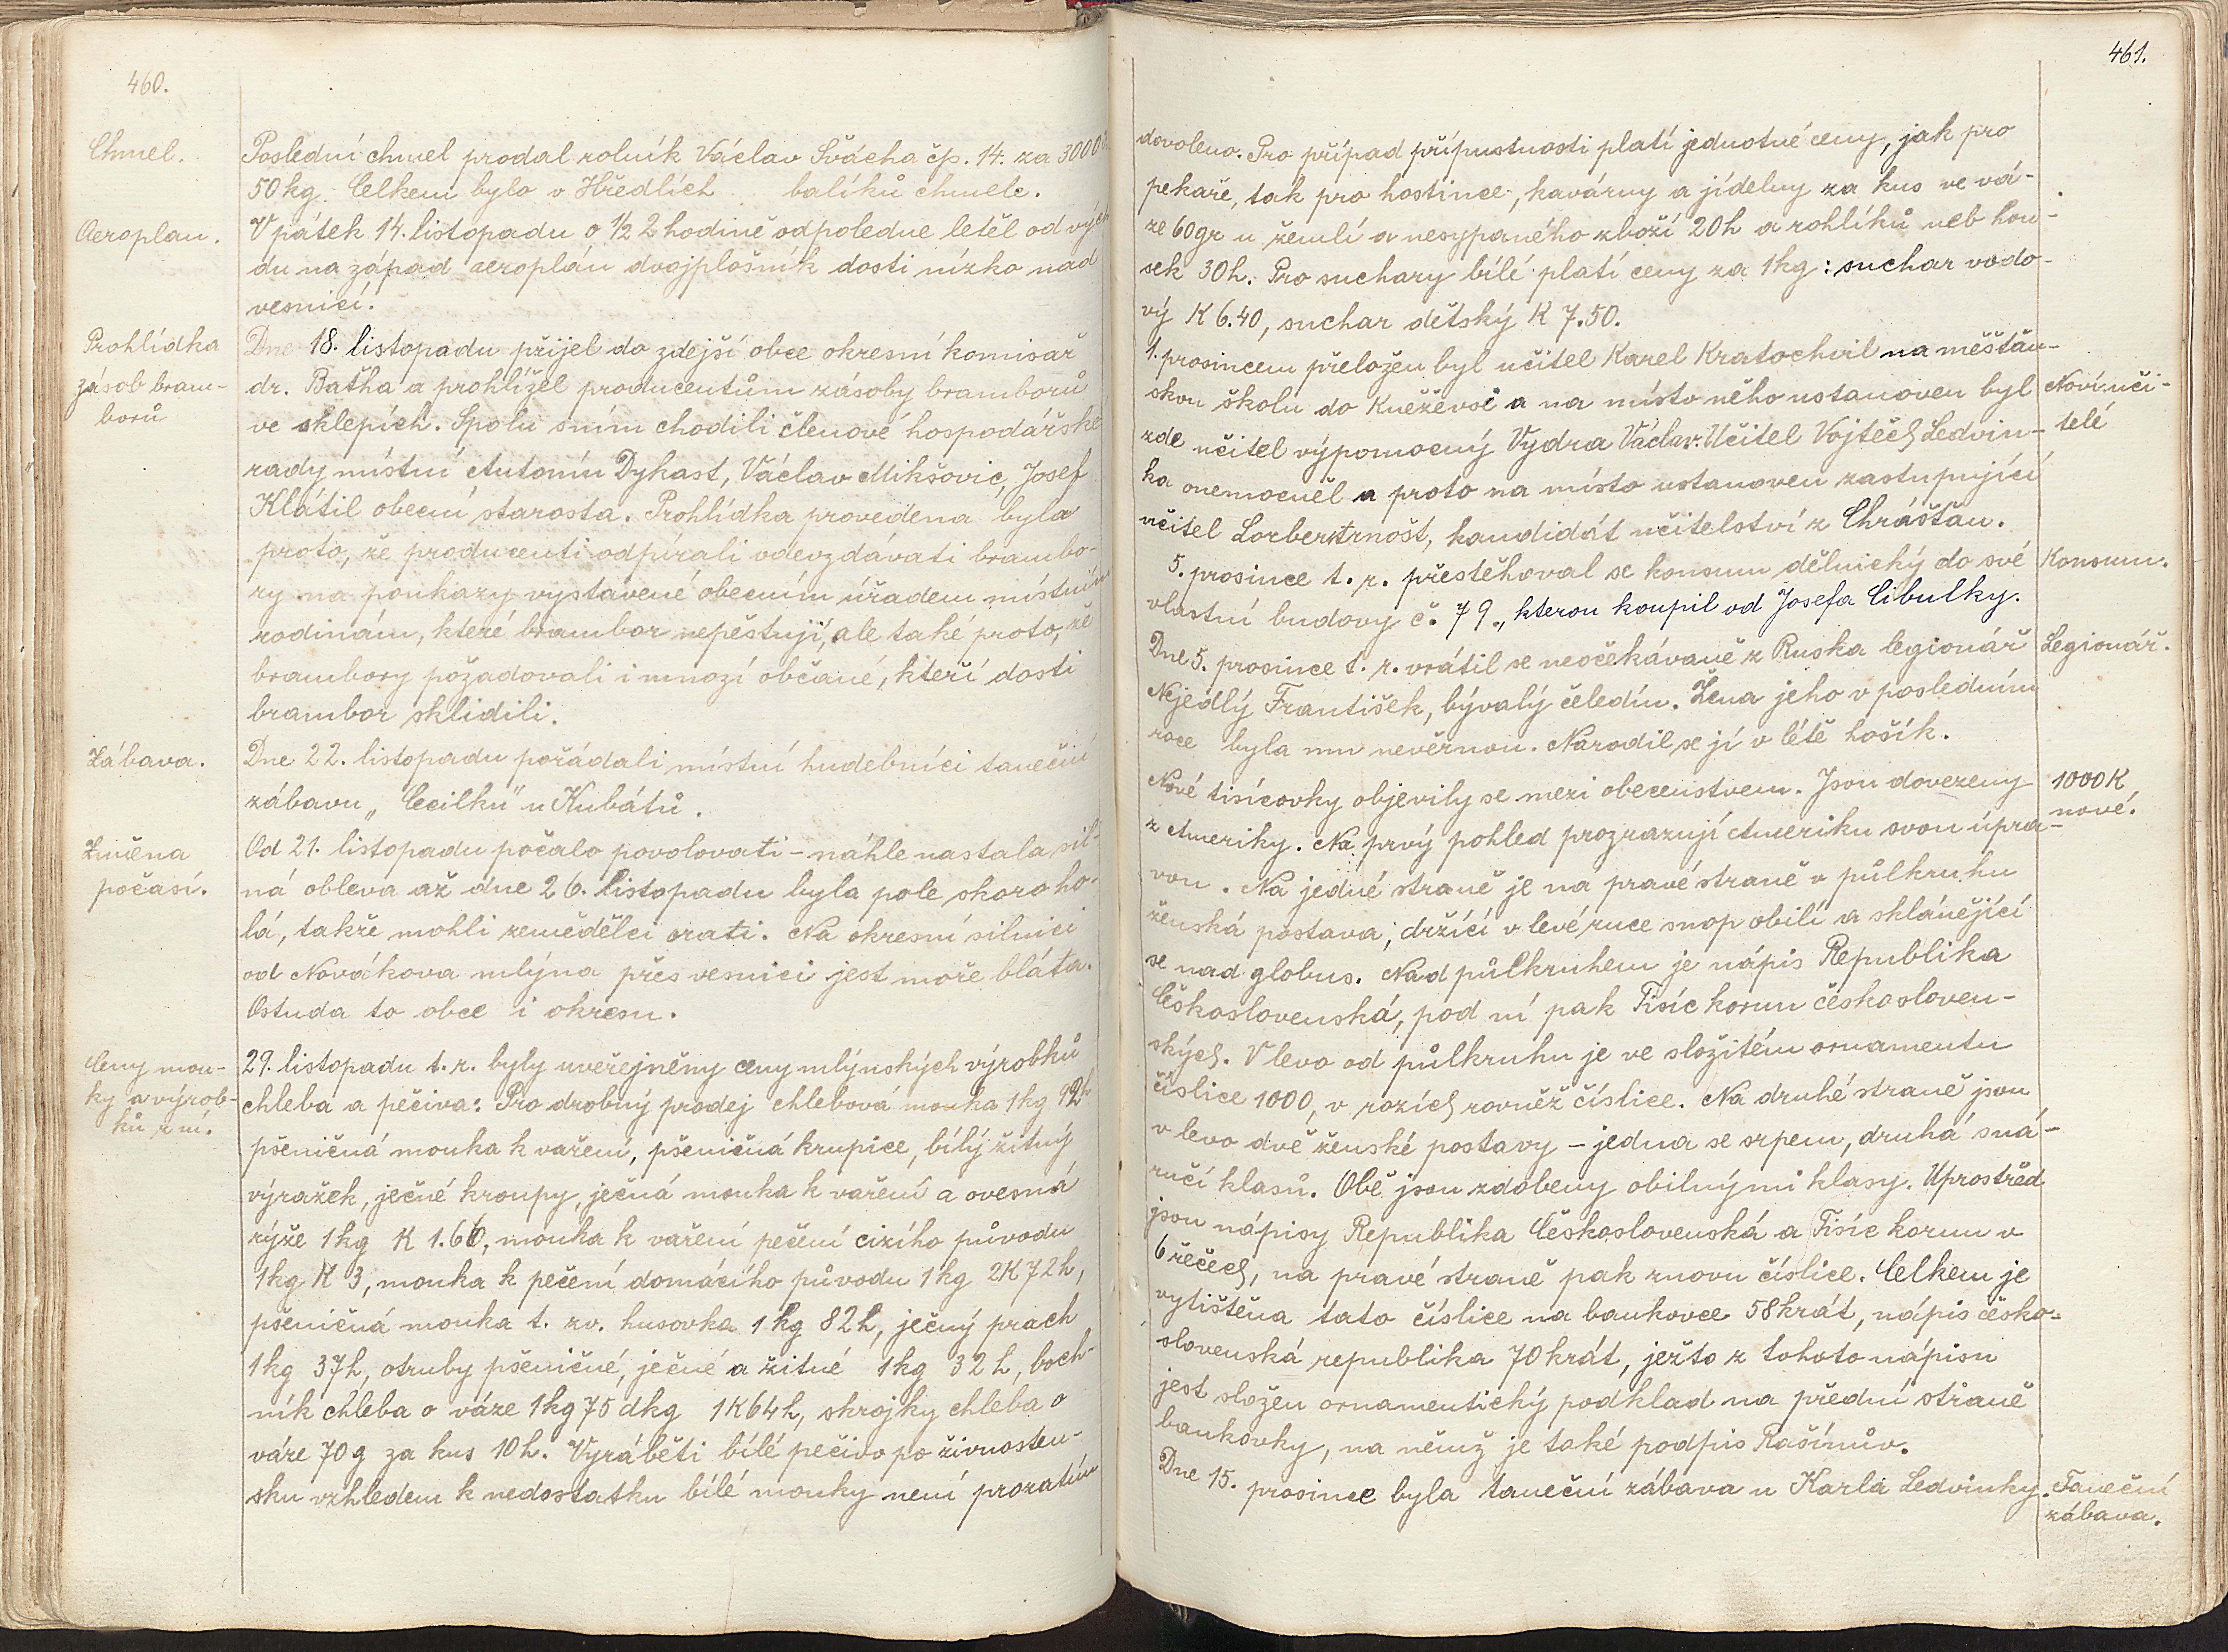 460.
Chmel.
Poslední chmel prodal rolník Václav Švácha čp. 14. za 3000
50 kg. Celkem bylo v Hředlích balíků chmele.
Aeroplan.
V pátek 14. listopadu o ½ 2 hodině odpoledne letěl od vých
du na západ aeroplán dvojplošník dosti nízko nad
vesnicí.
Prohlídka
zásob bram-
borů
Dne 18. listopadu přijel do zdejší obce okresní komisař
dr. Baťha a prohlížel producentům zásoby bramborů
ve sklepích. Spolu s ním chodili členové hospodářské
rady místní Antonín Dykast, Václav Mikšovic, Josef
Klátil obecní starosta. Prohlídka provedena byla
proto, že producenti odpírali odevzdávati brambo-
ry na poukazy vystavené obecním úřadem místním
rodinám, které brambor nepěstují, ale také proto, že
brambory požadovali i mnozí občané, kteří dosti
brambor sklidili.
Zábava.
Dne 22. listopadu pořádali místní hudebníci taneční
zábavu „Cecilku" u Kubátů.
Změna
počasí.
Od 21. listopadu počalo povolovati – náhle nastala sil-
ná obleva až dne 26. listopadu byla pole skoro ho-
lá, takže mohli zemědělci orati. Na okresní silnici
od Novákova mlýna přes vesnici jest moře bláta.
Ostuda to obce i okresu.
Ceny mou-
ky a výrob-
ků z ní.
29. listopadu t. r. byly uveřejněny ceny mlýnských výrobků
chleba a pečiva: Pro drobný prodej chlebová mouka 1 kg 92h
pšeničná mouka k vaření, pšeničná krupice, bílý žitný
výražek, ječné kroupy, ječná mouka k vaření a ovesná
rýže 1 kg K 1.60, mouka k vaření pečení cizího původu
1 kg K 3, mouka k pečení domácího původu 1 kg 2K 72h,
pšeničná mouka t. zv. husovka 1 kg 82h, ječný prach
1 kg 37h, otruby pšeničné, ječné a žitné 1 kg 32h, boch-
ník chleba o váze 1 kg 75 dkg 1K 64h, skrojky chleba o
váze 70 g za kus 10h. Vyráběti bílé pečivo po živnosten-
sku vzhledem k nedostatku bílé mouky není prozatím
461.
dovoleno. Pro případ přípustnosti platí jednotné ceny, jak pro
pekaře, tak pro hostince, kavárny a jídelny za kus ve vá-
ze 60 gr u žemlí a nesypaného zboží 20h a rohlíků neb hou-
sek 30h. Pro suchary bílé platí ceny za 1kg: suchar vodo-
vý K 6.40, suchar dětský K 7.50.
1. prosincem přeložen byl učitel Karel Kratochvil na měšťan-
skou školu do Kněževsi a na místo něho ustanoven byl
Noví uči-
zde učitel výpomocný Vydra Václav. Učitel Vojtěch Ledvin-
telé
ka onemocněl a proto na místo ustanoven zastupující
učitel Lorber Arnošt, kandidát učitelství z Chrášťan.
5. prosince t. r. přestěhoval se konsum dělnický do své
Konsum.
vlastní budovy č. 79., kterou koupil od Josefa Cibulky.
Dne 5. prosince t. r. vrátil se neočekávaně z Ruska legionář
Legionář.
Nejedlý František, bývalý čeledín. Žena jeho v posledním
roce byla mu nevěrnou. Narodil se jí v létě hošík.
Nové tisícovky objevily se mezi obecenstvem. Jsou dovezeny
1000 K
nové.
z Ameriky. Na prvý pohled prozrazují Ameriku svou úpra-
vou. Na jedné straně je na pravé straně v půlkruhu
ženská postava, držící v levé ruce snop obilí a sklánějící
se nad globus. Nad půlkruhem je nápis Republika
Československá, pod ní pak Tisíc korun českosloven-
ských. V levo od půlkruhu je ve složitém ornamentu
číslice 1000, v rozích rovněž číslice. Na druhé straně jsou
v levo dvě ženské postavy – jedna se srpem, druhá s ná-
ručí klasů. Obě jsou zdobeny obilnými klasy. Uprostřed
jsou nápisy Republika Československá a Tisíc korun v
6 řečech, na pravé straně pak znovu číslice. Celkem je
vytištěna tato číslice na bankovce 58 krát, nápis česko-
slovenská republika 70 krát, ježto z tohoto nápisu
jest složen ornamentický podklad na přední straně
bankovky, na němž je také podpis Rašínův.
Dne 15. prosince byla taneční zábava u Karla Ledvinky.
Taneční
zábava.